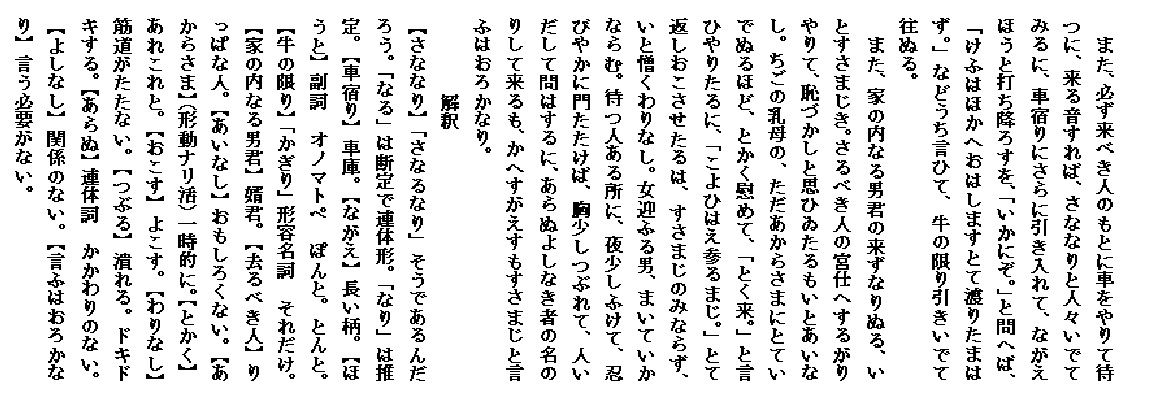 また、必ず来べき人のもとに車をやりて待
つに、来る音すれば、さななりと人々いでて
みるに、車宿りにさらに引き入れて、ながえ
ほうと打ち降ろすを、「いかにぞ。」と問へば、
「けふはほかへおはしますとて渡りたまは
ず。」などうち言ひて、牛の限り引きいでて
往ぬる。
また、家の内なる男君の来ずなりぬる、い
とすさまじき。さるべき人の宮仕へするがり
やりて、恥づかしと思ひゐたるもいとあいな
し。ちごの乳母の、ただあからさまにとてい
でぬるほど、とかく慰めて、「とく来。」と言
ひやりたるに、「こよひはえ参るまじ。」とて
返しおこさせたるは、すさまじのみならず、
いと憎くわりなし。女迎ふる男、まいていか
ならむ。待つ人ある所に、夜少しふけて、忍
びやかに門たたけば、胸少しつぶれて、人い
だして問はするに、あらぬよしなき者の名の
りして来るも、かへすがえすもすさまじと言
ふはおろかなり。
解釈
【さななり】「さなるなり」そうであるんだ
ろう。「なる」は断定で連体形。「なり」は推
定。【車宿り】車庫。【ながえ】長い柄。【ほ
うと】副詞　オノマトペ　ぽんと。とんと。
【牛の限り】「かぎり」形容名詞　それだけ。
【家の内なる男君】婿君。【去るべき人】り
っぱな人。【あいなし】おもしろくない。【あ
からさま】(形動ナリ活)一時的に。【とかく】
あれこれと。【おこす】よこす。【わりなし】
筋道がたたない。【つぶる】潰れる。ドキド
キする。【あらぬ】連体詞　かかわりのない。
【よしなし】関係のない。【言ふはおろかな
り】言う必要がない。